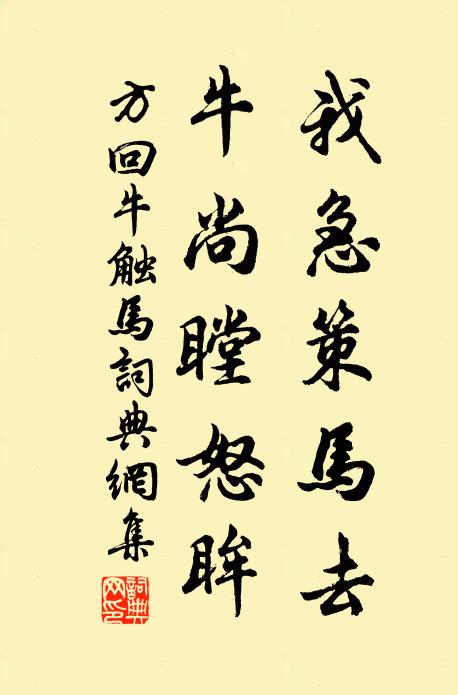 我急策馬去
牛尚瞠怒眸
方回牛触馬詞典網集
詞典网印